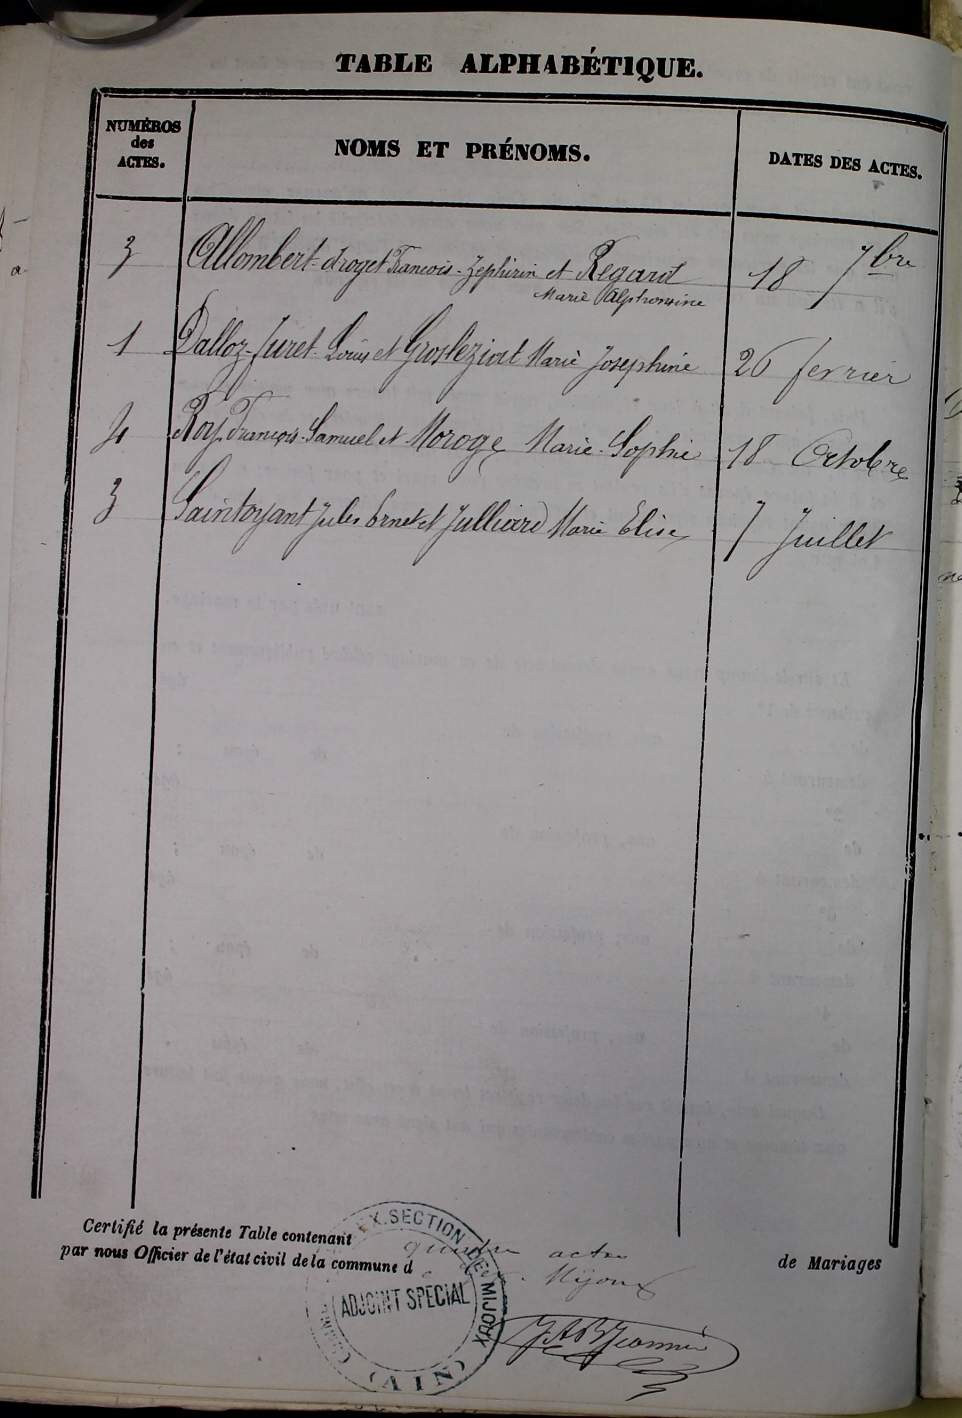 TABLE ALPHABÉTIQUE.
NUMÉROS des ACTES. NOMS ET PRÉNOMS. DATES DES ACTES.
3 Allombert-droget François-Zephirin et Regard 18 7bre
Marie Alphonsine
1 Dalloz-furet Louis et Grosleziat Marie Josephine 26 fevrier
4 Roy François-Samuel et Moroge Marie-Sophie 18 Octobre
3 Saintoyant Jules Ernet et Julliard Marie Elise 7 Juillet
Certifié la présente Table contenant quatre actes de Mariages
par nous Officier de l'état civil de la commune d Mijoux
SECTION DE MIJOUX
ADJOINT SPECIAL
(AIN)